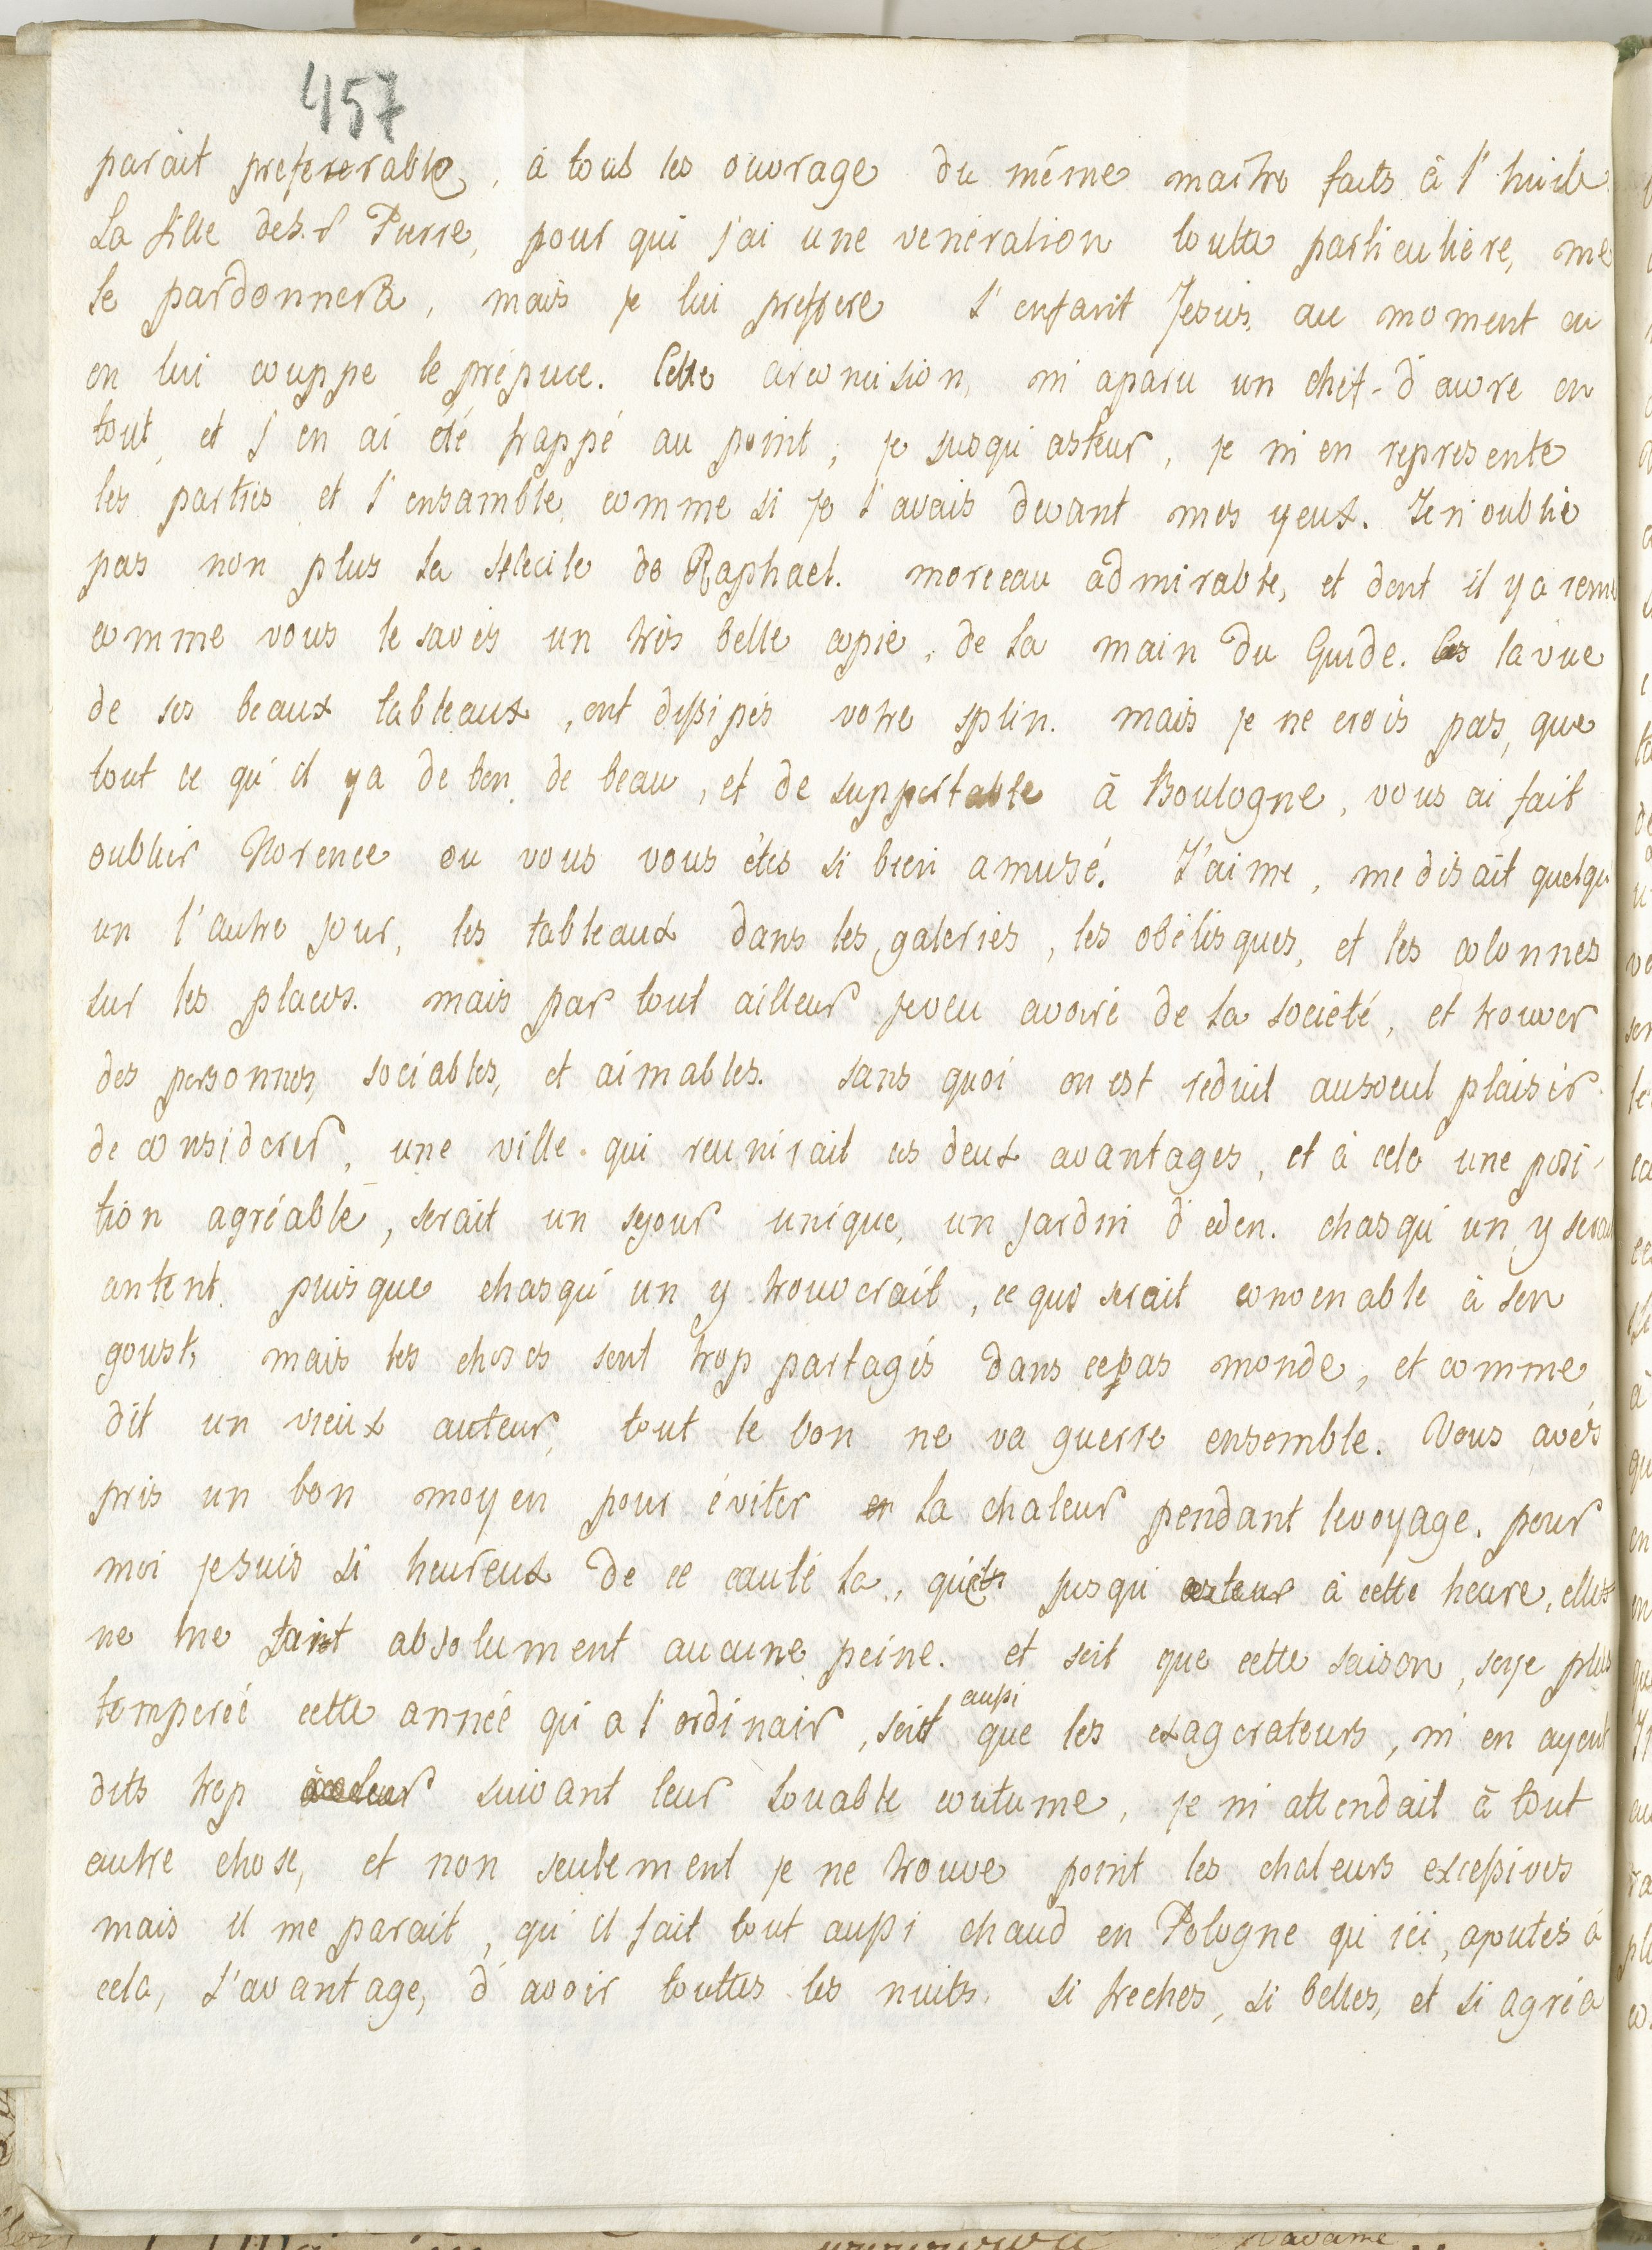 457
parait prefererable, à tous les ouvrage du même maitre faits à l'huile.
La fille de S.t Pierre, pour qui j'ai une veneration toutte particulière, me
le pardonnera, mais je lui preffere l'enfant Jesus, au moment ou
on lui couppe le prépuce. Cette circoncision, m'aparu un chef-d'auvre en
tout, et j'en ai été frappé au point, je jusqu'asteur, je m'en represente
les parties et l'ensamble, comme si je l'avais devant mes yeux. Je n'oublie
pas non plus la S.te Cecile de Raphael. morceau admirable, et dont il y a
comme vous le savés un très belle copie, de la main du Guide. la vue
de ses beaux tableaux, ont dissipés votre splin. mais je ne crois pas, que
tout ce qu'il y a de bon, de beau, et de supportable à Boulogne, vous ai fait
oublier Florence ou vous vous êtes si bien amusé. J'aime, me disait quelqu'
un l'autre jour, les tableaux dans les galeries, les obélisques, et les colonnes
sur les places. mais par tout ailleur je veu avoire de la societé, et trouver
des personnes, sociables, et aimables. sans quoi on est reduit au seul plaisir
de considerer, une ville qui reunirait ces deux avantages, et à cela une posi-
tion agréable, serait un sejour unique, un jardin d'eden. chasqu'un y serait
content. puisque chasqu'un y trouverait, ce que serait convenable à son
goust, mais les choses sont trop partagés dans ce bas monde, et comme
dit un vieux auteur, tout le bon ne va guerre ensemble. Vous avés
pris un bon moyen pour éviter la chaleur pendant le voyage. pour
moi je suis si heureux de ce cauté la, qu'elts jusqu'asteur à cette heure, elles
ne me faint absolument aucune peine. et soit que cette saison, soye plus
temperée cette année qu'a l'ordinair, soit aussi que les exagerateurs, m'en ayent
dits trop suivant leur louable coutume, je m'attendait à tout
autre chose, et non seulement je ne trouve point les chaleurs excessives
mais il me parait, qu'il fait tout aussi chaud en Pologne qu'ici, ajoutés à
cela, l'avantage, d'avoir touttes les nuits, si freches, si belles, et si agréa